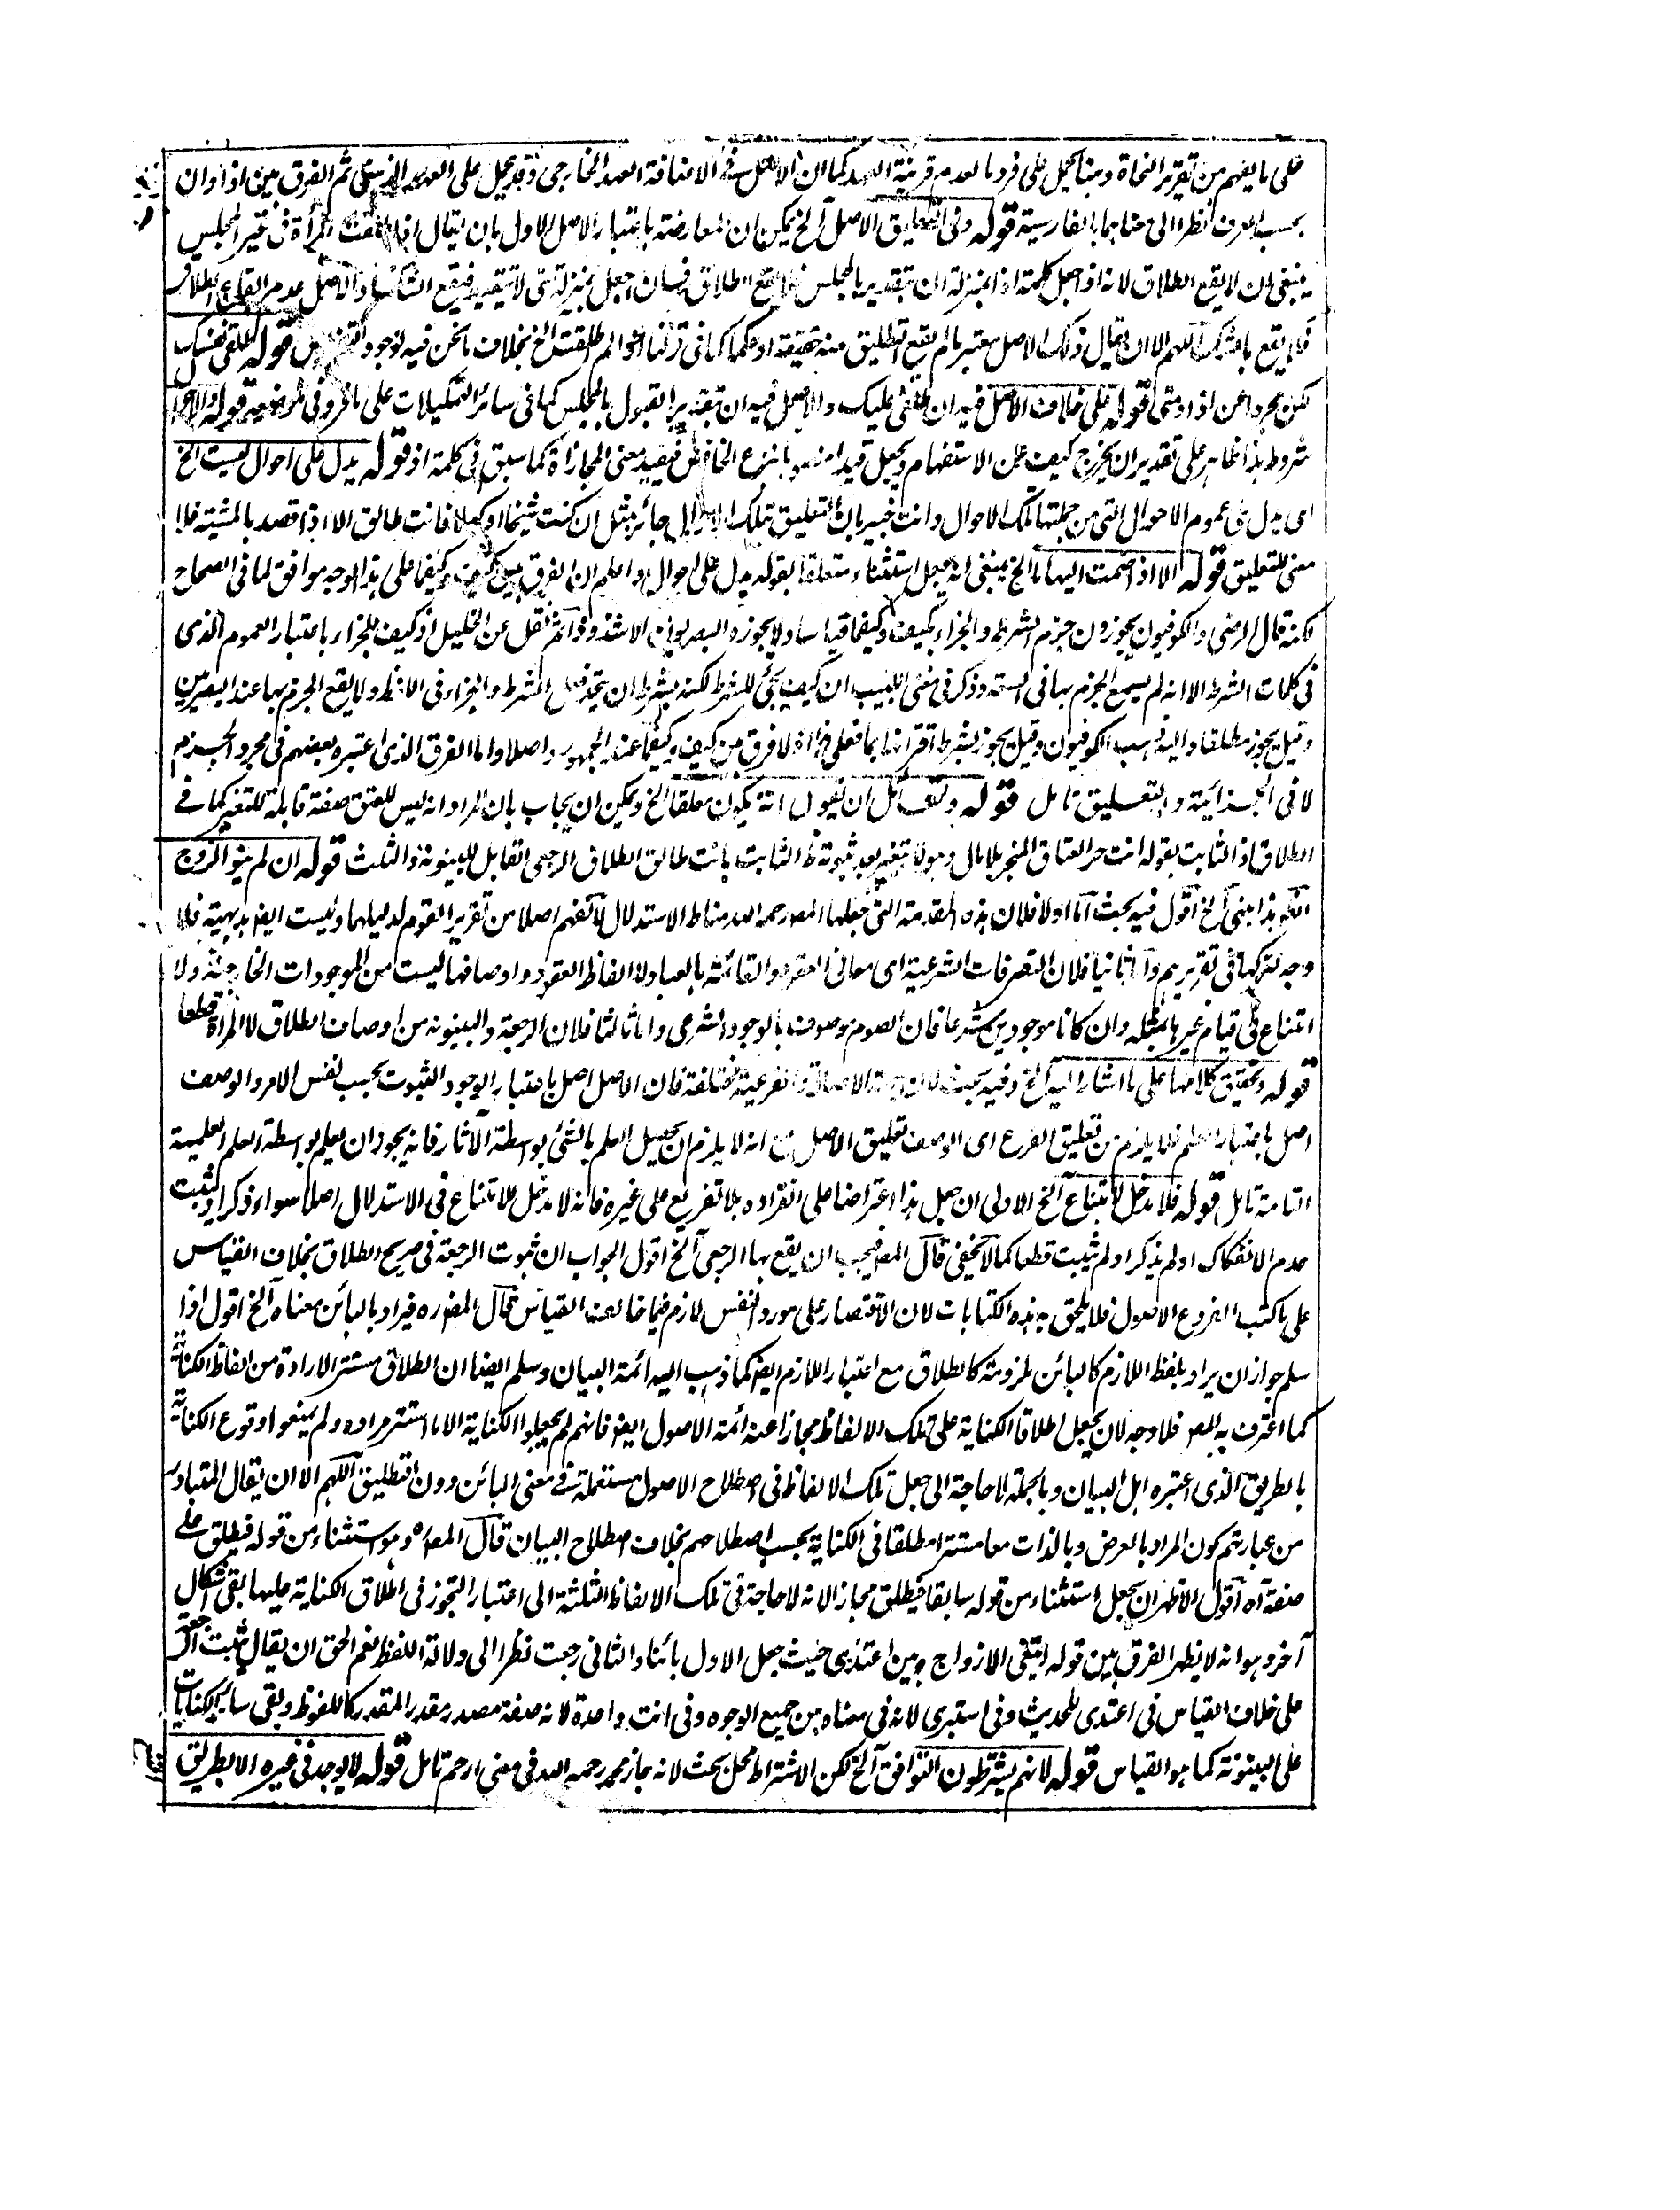 على ما يفهم من تقرير النحاة وهنا يحمل على فرد ما لعدم قرينة العهد كما ان الاصل في الاضافة العهد الخارجي وقد يحمل على العهد الذهني ثم الفرق بين اذا وان
بحسب العرف نظرا الى معناهما بالفارسية قوله وفي التعليق الاصل الخ يمكن ان المعارضة باعتبار الاصل الاول بان يقال اذا طلقت المرأة في غير المجلس
ينبغي ان لا يقع الطلاق لانه اذا جعل كلمة اذا بمنزلة ان يتقيد بالمجلس فلا يقع الطلاق وان جعل بمنزلة متى لا يتقيد فيقع الشك والاصل عدم ايقاع الطلاق
فلا يقع بالشك اللهم الا ان يقال ذلك الاصل معتبر ما لم يقع التطليق منه حقيقة او حكما كما في قولنا اذا لم اطلقك الخ بخلاف ما نحن فيه لوجود قوله طلقي نفسك
لكن مجردا عن اذا ومتى قوله على خلاف الاصل فيه ان طلقي تمليك والاصل فيه ان يتقيد القبول بالمجلس كما في سائر التمليكات على ما عرف في موضعه قوله
شروط هذا ظاهر على تقدير ان يخرج كيف عن الاستفهام ويجعل قيدا منصوبا بنزع الخافض فيفيد معنى المجازاة كما سبق في كلمة اذ قوله يدل على احوال ليست الخ
اى يدل على عموم الاحوال التي من جملتها تلك الاحوال وانت خبير بان التعليق بتلك الاحوال جائز مثل ان كنت شيخا او كهلا فانت طالق الا اذا قصد بالمشية فلا
معنى للتعليق قوله الا اذا ضمت اليها ما الخ ينبغي ان يجعل استثناء متعلقا بقوله يدل على احوال واعلم ان الفرق بين كيف وكيفما على هذا الوجه موافق لما في الصحاح
لكنه قال الرضى والكوفيون يجوزون جزم الشرط والجزاء بكيف وكيفما قياسا ولا يجوزه البصريون الا شذوذا ثم نقل عن الخليل ان كيف للجزاء باعتبار العموم الذى
في كلمات الشرط الا انه لم يسمع الجزم بها في السعة وذكر في مغنى اللبيب ان كيف يجئ للشرط لكنه بشرط ان يتحد فعل الشرط والجزاء في اللفظ ولا يقع الجزم بها عند البصريين
وقيل يجوز مطلقا واليه ذهب الكوفيون وقيل يجوز بشرط اقترانها بما فعلى هذا لا فرق من كيف وكيفما عند الجمهور اصلا واما الفرق الذى اعتبره بعضهم في مجرد الجزم
لا في الجزائية والتعليق تامل قوله ولقائل ان يقول انه يكون معلقا الخ ويمكن ان يجاب بان المراد انه ليس للعتق صفة قابلة للتغير كما في
الطلاق اذ الثابت بقوله انت حر العتاق المنجز بلا مال وهو لا يتغير بعد ثبوته فالثابت بانت طالق الطلاق الرجعى القابل للبينونة والثلث قوله ان لم ينو الزوج
الخ هذا مبنى الخ اقول فيه بحث اما اولا فلان هذه المقدمة التي جعلها المص رحمه الله مناط الاستدلال لا تفهم اصلا من تقرير القوم لدليلهما وليست ايضا بديهية فلا
وجه لتركها في تقريرهم واما ثانيا فلان التصرفات الشرعية اى معانى العقود القائمة بالعباد لا الفاظ العقود واوصافها ليست من الموجودات الخارجية ولا
امتناع في قيام غيرها بمثله وان كانا موجودين شرعا فان الصوم موصوف بالوجود الشرعي واما ثالثا فلان الرجعة والبينونة من اوصاف الطلاق لا المرأة قطعا
قوله وتحقيق كلامهما على ما اشار اليه الخ وفيه بحث لان جهة الاصالة والفرعية مختلفة فان الاصل اصل باعتبار الوجود الثبوت بحسب نفس الامر والوصف
اصل باعتبار العلم فلا يلزم من تعليق الفرع اى الوصف تعليق الاصل مع انه لا يلزم ان يحصل العلم بالشئ بواسطة الآثار فانه يجوز ان يعلم بواسطة العلم العلمية
التامة تامل قوله فلا دخل لامتناع الخ الاولى ان جعل هذا اعتراضا على انفراده بلا تفريع على غيره فانه لا دخل للامتناع في الاستدلال اصلا سواء ذكر او يثبت
عدم الانفكاك او لم يذكر او لم يثبت قطعا كما لا يخفى قال المص فيجب ان يقع بها الرجعى الخ اقول الجواب ان ثبوت الرجعة في صريح الطلاق بخلاف القياس
على ما كتب الفروع الاصول فلا يلحق به هذه الكتابات لان الاقتصار على مورد النفس لازم فيما خالف القياس قال المص ره فيراد بالبائن معناه الخ اقول اذا
سلم جواز ان يراد بلفظ اللازم كالبائن ملزومة كالطلاق مع اعتبار اللازم ايضا كما ذهب اليه ائمة البيان وسلم ايضا ان الطلاق مستتر الارادة من الفاظ الكناية
كما اعترف به المص فلا وجه لان يجعل اطلاق الكناية على تلك الالفاظ مجازا عند ائمة الاصول ايضا فانهم لم يجعلوا الكناية الا ما استتر مراده ولم يمنعوا وقوع الكناية
بالطريق الذى اعتبره اهل البيان وبالجملة لا حاجة الى جعل تلك الالفاظ في اصطلاح الاصول مستعملة في معنى البائن دون التطليق اللهم الا ان يقال المتبادر
من عبارتهم كون المراد بالعرض وبالذات معا مستترا مطلقا في الكناية بحسب اصطلاحهم بخلاف اصطلاح البيان قال المص ره وهو استثناء من قوله فيطلق على
صفة آه اقول الاظهر ان يجعل استثناء من قوله سابقا فيطلق مجازا لانه لا حاجة في تلك الالفاظ الثلثة الى اعتبار التجوز في اطلاق الكناية عليها بقى اشكال
آخر وهو انه لا يظهر الفرق بين قوله ابتغى الازواج وبين اعتدى حيث جعل الاول بائنا والثانى رجعت نظرا الى دلالة اللفظ نعم الحق ان يقال ثبت
على خلاف القياس في اعتدى للحديث وفى استبرى لانه في معناه من جميع الوجوه وفى انت واحدة لانه صفة مصدر مقدر المقدر كالملفوظ وبقى سائر الكنايات
على البينونة كما هو القياس قوله لانهم يشترطون التوافق الخ لكن الاشتراط محل بحث لانه جاز محمد رحمه الله في معنى ارحم تامل قوله لا يوجد في غيره الا بطريق